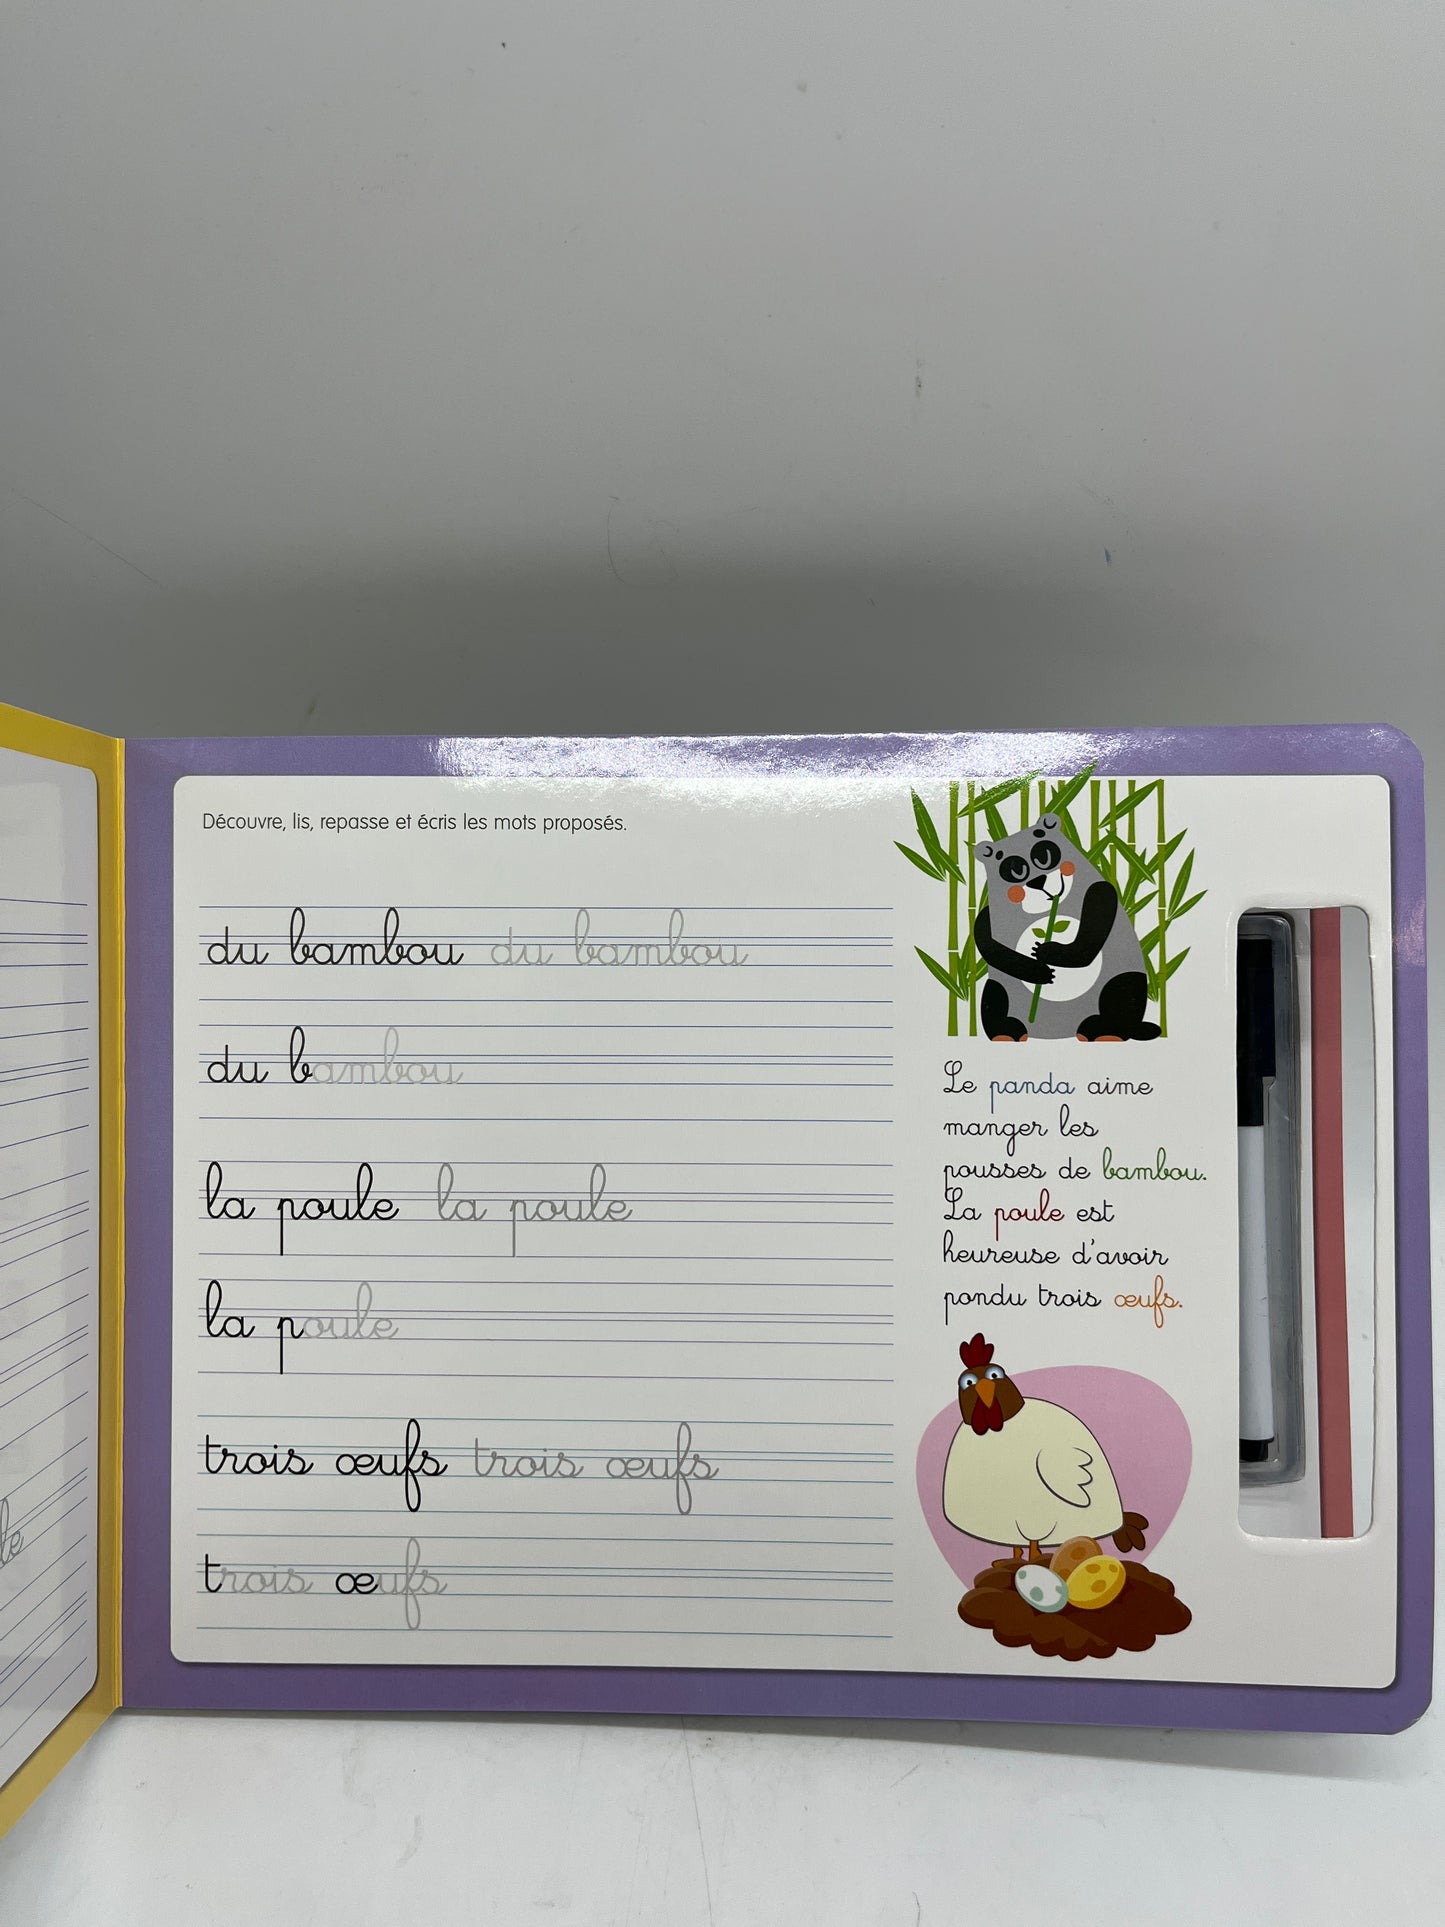 Découvre, lis, repasse et écris les mots proposés.
du bambou du bambou
du bambou
la poule la poule
la poule
trois œufs trois œufs
trois œufs
Le panda aime
manger les
pousses de bambou.
La poule est
heureuse d'avoir
pondu trois œufs.